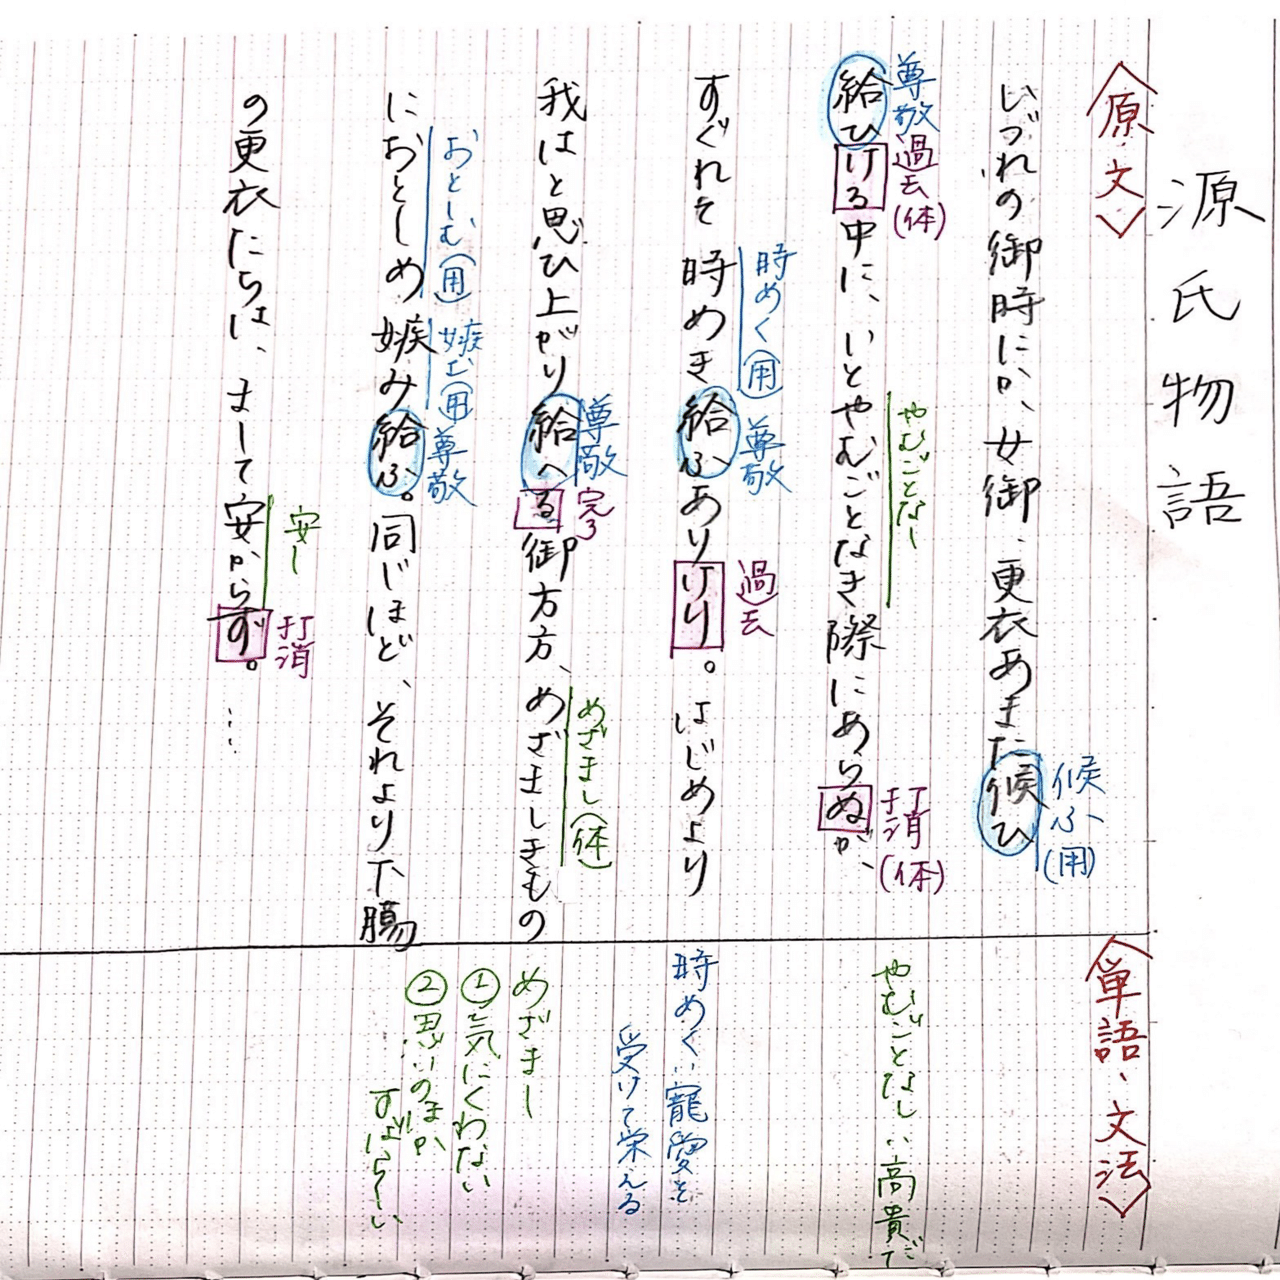 源氏物語
〈原文〉
いづれの御時にか、女御、更衣あまた候ひ
候ふ(用)
給ひける中に、いとやむごとなき際にあらぬが、
尊敬
過去(体)
やむごとなし
打消(体)
すぐれて時めき給ふありけり。はじめより
時めく(用)
尊敬
過去
我はと思ひ上がり給へる御方方、めざましきもの
尊敬
完了
めざまし(体)
におとしめ嫉み給ふ。同じほど、それより下臈
おとしむ(用)
嫉む(用)
尊敬
の更衣たちは、まして安からず。…
安し
打消
〈単語、文法〉
やむごとなし… 高貴だ
時めく… 寵愛を
受けて栄える
めざまし
①気にくわない
②思いのほか
すばらしい